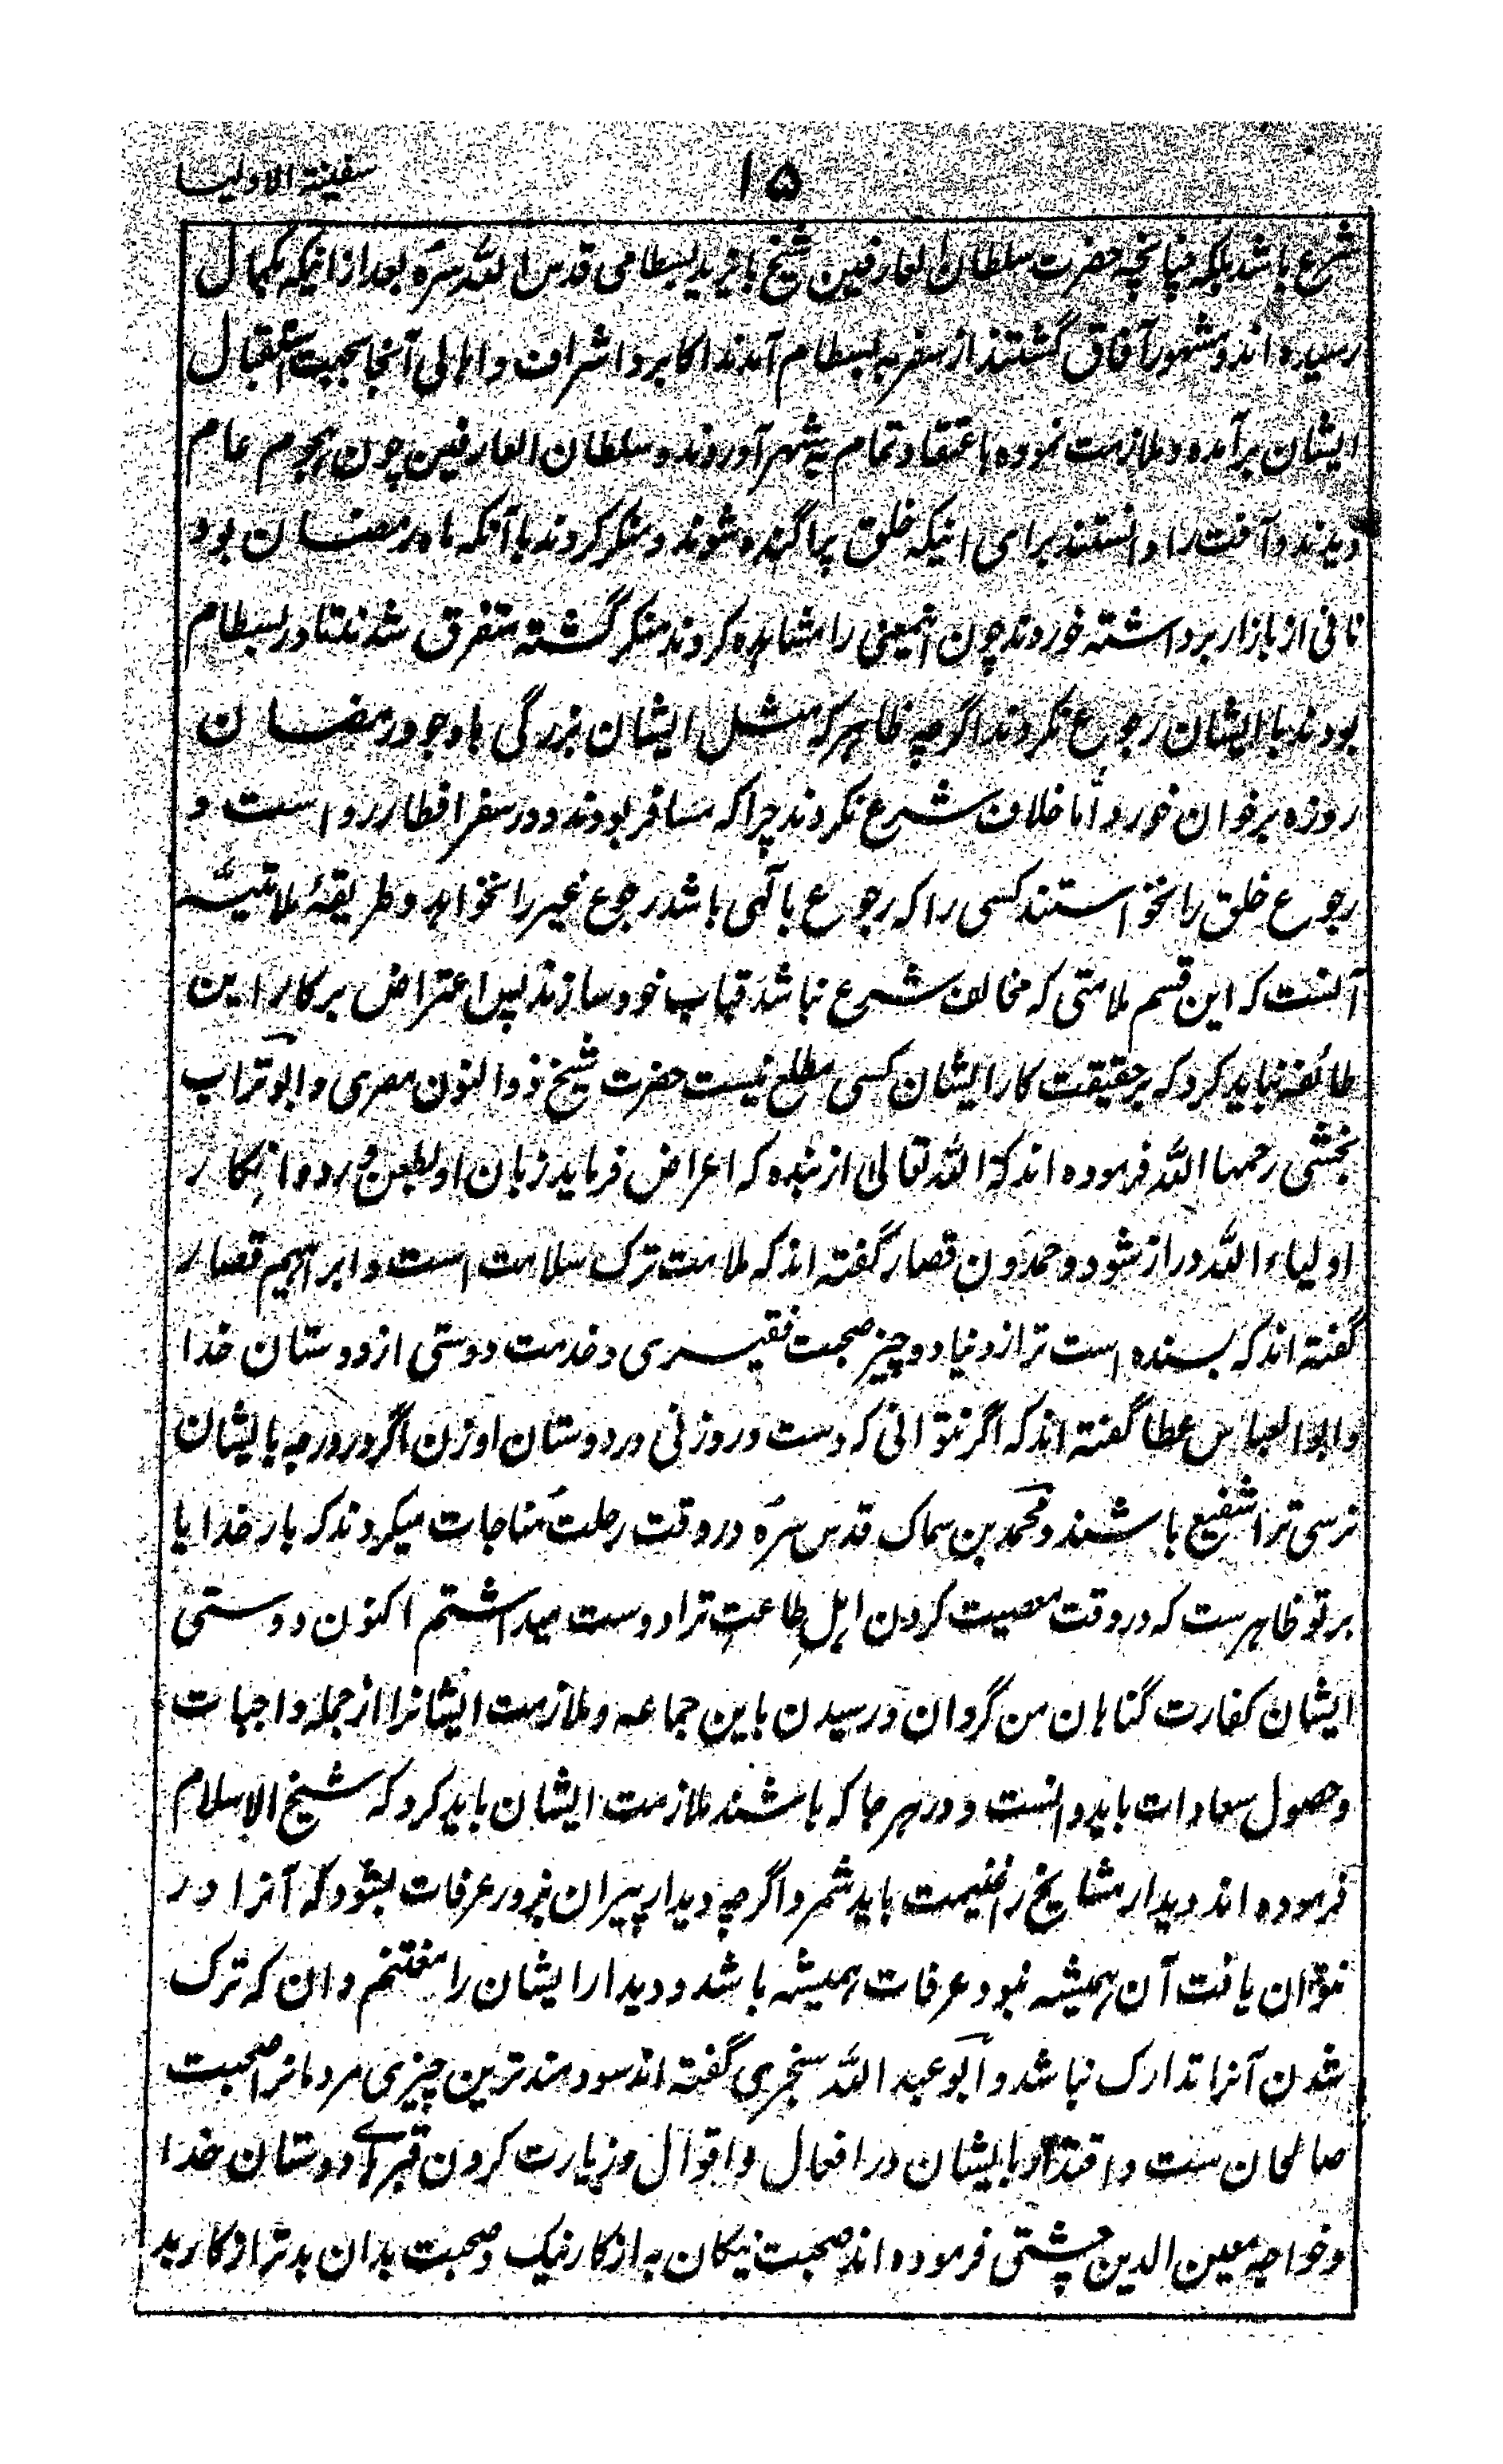 سفینة الاولیا
۱۵
شرع باشد بلکه چنانچه حضرت سلطان العارفین شیخ بایزید بسطامی قدس الله سره بعد از انیکه بکمال
رسیده اند و مشهور آفاق گشتند از سفر به بسطام آمدند اکابر و اشراف و اهالی آنجا بجهت استقبال
ایشان برآمده و ملازمت نموده باعتقاد تمام به شهر آوردند و سلطان العارفین چون هجوم عام
دیدند و آفت را دانستند برای انیکه خلق پراگنده شوند و منکر گردند با آنکه ماه رمضان بود
نانی از بازار برداشته خوردند چون اینمعنی را مشاهده کردند منکر گشته متفرق شدند تا در بسطام
بودند با ایشان رجوع نکردند اگرچه ظاهر که مثل ایشان بزرگی باوجود رمضان
روزه بر خوان خورد اما خلاف شرع نکردند چراکه مسافر بودند و در سفر افطار روا است و
رجوع خلق را نخواستند کسی را که رجوع با آلهی باشد رجوع غیر را نخواهد و طریقهٔ ملامتیه
آنست که این قسم ملامتی که مخالف شرع نباشد قباب خود سازند پس اعتراض بر کار این
طائفه نباید کرد که بر حقیقت کار ایشان کسی مطلع نیست حضرت شیخ ذوالنون مصری و ابوتراب
نخشبی رحمهما الله فرموده اند که الله تعالی از بنده که اعراض فرماید زبان او بطعن و رد و انکار
اولیاء الله دراز شود و حمدون قصار گفته اند که ملامت ترک سلامت است و ابراهیم قصار
گفته اند که بسنده است ترا از دنیا دو چیز صحبت فقیری و خدمت دوستی از دوستان خدا
و ابوالعباس عطا گفته اند که اگر نتوانی که دست در وزنی در دوستان او زن اگر در درجه بایشان
نرسی ترا شفیع باشند و محمد بن سماک قدس سره در وقت رحلت مناجات میکردند که بار خدایا
بر تو ظاهرست که در وقت معصیت کردن اهل طاعت ترا دوست میداشتم اکنون دوستی
ایشان کفارت گناهان من گردان و رسیدن باین جماعه و ملازمت ایشانرا از جمله واجبات
و حصول سعادات باید دانست و در هر جا که باشند ملازمت ایشان باید کرد که شیخ الاسلام
فرموده اند دیدار مشایخ را غنیمت باید شمرد اگرچه دیدار پیران نه در عرفات بشود که آنرا در
نتوان یافت آن همیشه نبود عرفات همیشه باشد و دیدار ایشان را مغتنم دان که ترک
شدن آنرا تدارک نباشد و ابو عبد الله سنجری گفته اند سودمندترین چیزی مردمانرا صحبت
صالحان ست و اقتدا بایشان در افعال و اقوال و زیارت کردن قبرهای دوستان خدا
و خواجه معین الدین چشتی فرموده اند صحبت نیکان به از کار نیک و صحبت بدان بدتر از کار بد